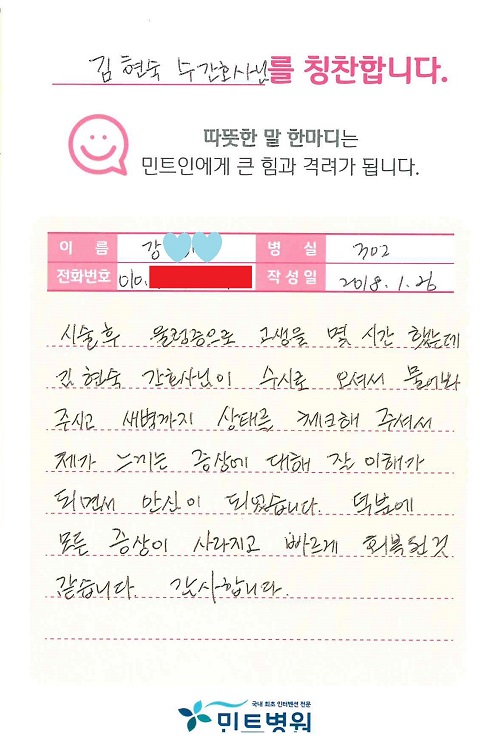 김현숙 수간호사님를 칭찬합니다.
따뜻한 말 한마디는
민트인에게 큰 힘과 격려가 됩니다.
이 름 강 병 실 302
전화번호 010. 작성일 2018.1.26
시술후 울렁증으로 고생을 몇 시간 했는데
김현숙 간호사님이 수시로 오셔서 물어봐
주시고 새벽까지 상태를 체크해 주셔서
제가 느끼는 증상에 대해 잘 이해가
되면서 안심이 되었습니다. 덕분에
모든 증상이 사라지고 빠르게 회복된것
같습니다. 감사합니다.
국내 최초 인터벤션 전문
민트병원